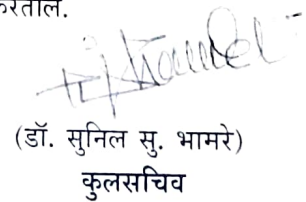 करतील.
(डॉ. सुनिल सु. भामरे)
कुलसचिव